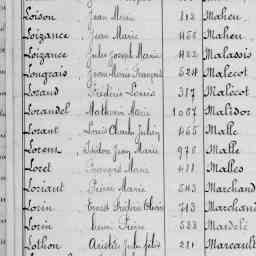 Loison Jean Marie 112 Maheu
Loizance Jean Marie 456 Maheu
Loizance Jules Joseph Marie 422 Malassis
Longrais Jean Marie François 524 Malécot
Lorand Frédéric Louis 317 Malécot
Lorandel Mathurin Marie 1067 Malidor
Lorant Louis Charles Julien 465 Malle
Lorent Isidore Jean Marie 970 Malle
Loret François Marie 411 Malles
Loriant Pierre Marie 543 Marchand
Lorin Ernest Frédéric Olivier 743 Marchand
Lorin Pierre 523
Lothon Aristide Jules félix 211 Marcault